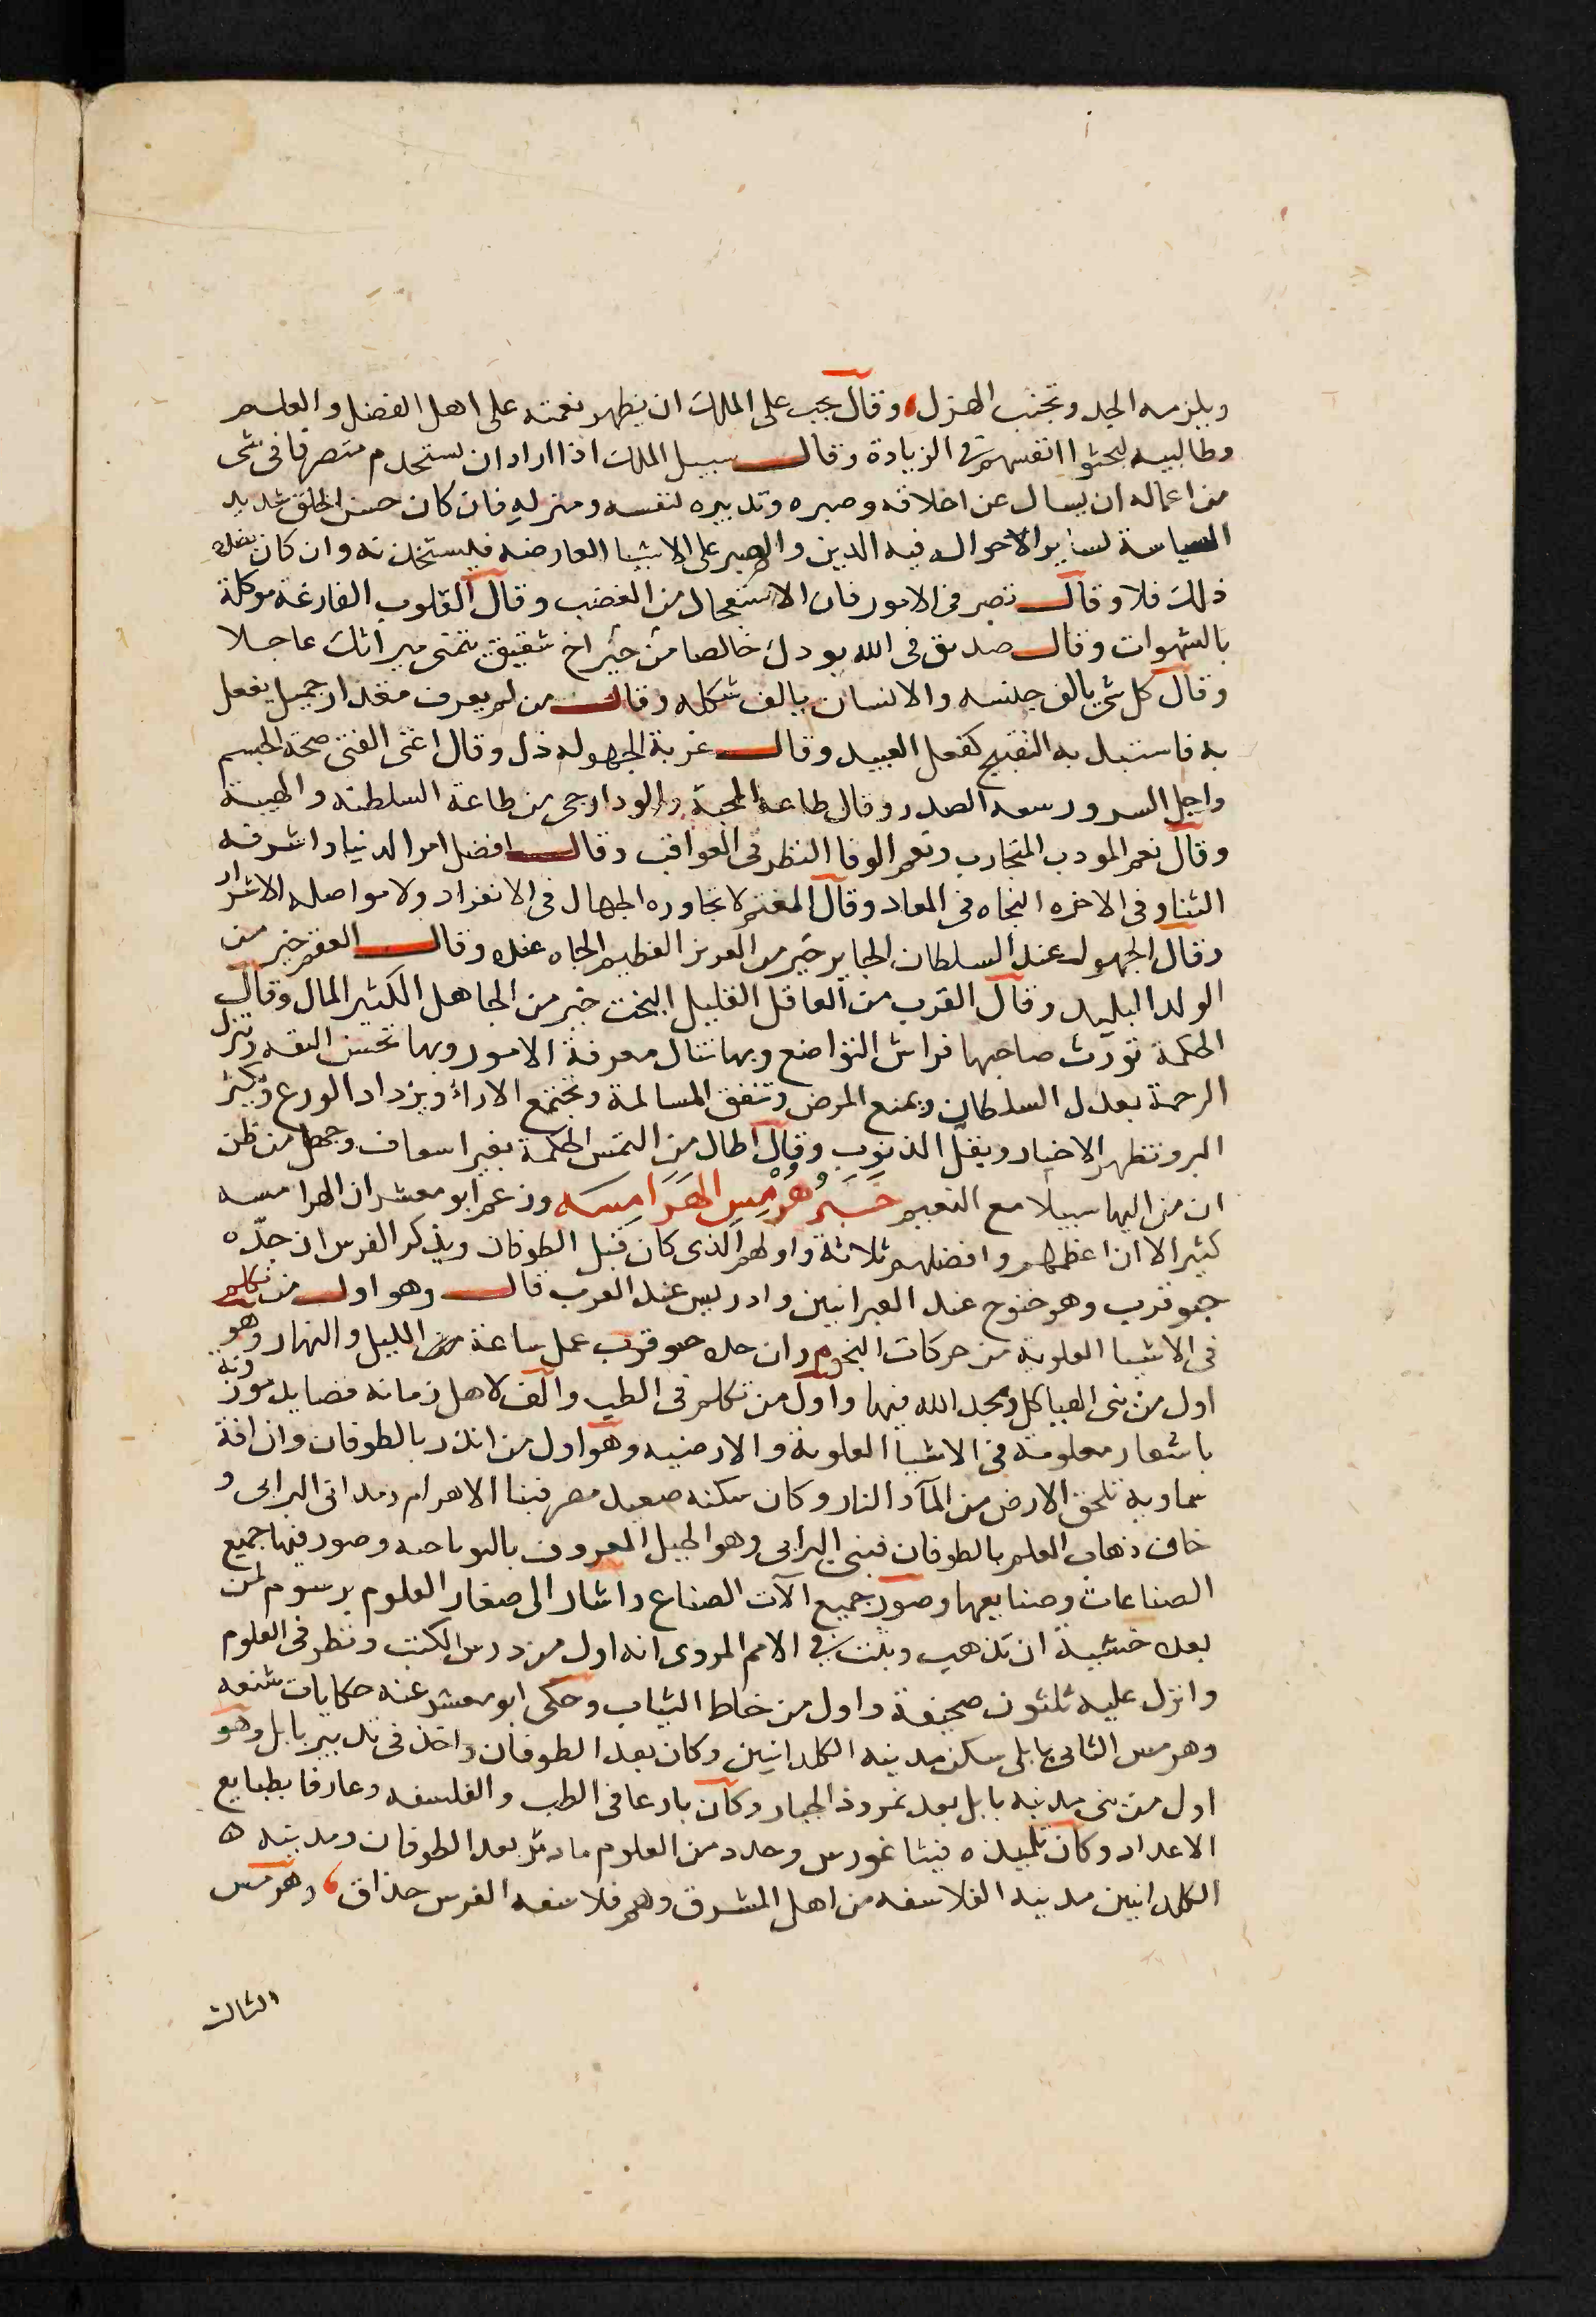 ويلزمه الجد وتجنب الهزل، وقال يجب على الملك ان يظهر نعمته على اهل الفضل والعلم
وطالبيه لبحثوا انفسهم في الزيادة وقال سبيل الملك اذا اراد ان يستخدم متصرفا في شى
من اعماله ان يسال عن اخلاقه وصبره وتدبيره لنفسه ومنزله فان كان حسن الخلق شديد
السياسة لساير الاحوال فيه الدين والصبر على الاشيا العارضه فليستخدنه وان كان بضد
ذلك فلا وقال تصبر فى الامور فان الاستعجال من الغضب وقال القلوب الفارغة موكلة
بالشهوات وقال صديق فى الله يودك خالصا من خير اخ شقيق يتمنى ميراثك عاجلا
وقال كل شي يالف جنسه والانسان يالف شكله وقال من لم يعرف مقدار جميل يفعل
به فاستبدل به القبيح كفعل العبيد وقال غربة الجهوله ذل وقال اغنى الفتى صحة الجسم
واجل السرور سعه الصدر وقال طاعه المحبة والود ارجى من طاعة السلطنه والهيبة
وقال نعم المودب التجارب ونعم الوفا النظر فى العواقب وقال افضل امر الدنيا واشرفه
الثنا وفى الاخره النجاه فى المعاد وقال المغتم لا تجاوره الجهال فى الانفراد ولا مواصله الاشرار
وقال الجهول عند السلطان الجاير خير من العزيز العظيم الجاه عنده وقال العقم خير من
الولد البليد وقال القرب من العاقل القليل البخت خير من الجاهل الكثير المال وقال
الحكمة تورث صاحبها فراش التواضع وبها تنال معرفة الامور وبها تحسن الثقه وتنزل
الرحمة بعدل السلطان ويمنع المرض وتتفق المسالمة وتجتمع الاراء ويزداد الورع ويكثر
البر وتظهر الاخيار ويقل الذنوب وقال اطال من التمس الحكمة بغير اسعاف وجهل من ظن
ان من اليها سبيلا مع النعيم خبر هرمس الهرامسه وزعم ابو معشر ان الهرامسه
كثير الا ان اعظمهم وافضلهم ثلاثة واولهم الذى كان قبل الطوفان ويذكر الفرس ان جده
جيوقرب وهو خنوخ عند العبرانيين وادريس عند العرب قال وهو اول من تكلم
فى الاشيا العلوية من حركات النجوم وان جده جيوقرب عمل ساعة من الليل والنهار وهو
اول من بنى الهياكل ومجد الله فيها واول من تكلم فى الطب والف لاهل زمانه قصايد موزونة
باشعار معلومة فى الاشيا العلوية والارضيه وهو اول من انذر بالطوفان وان افة
سماوية تلحق الارض من المآ والنار وكان سكنه صعيد مصر فبنا الاهرام ومداين البرابى و
خاف ذهاب العلم بالطوفان فبنى البرابى وهو الجبل المعروف وصور فيها جميع
الصناعات وصنايعها وصور جميع آلات الصناع واشار الى صفار العلوم برسوم لمن
بعده خشية ان تذهب وثبت في الامم المروى انه اول من درس الكتب ونظر فى العلوم
وانزل عليه ثلثون صحيفة واول من خاط الثياب وحكى ابو معشر عنه حكايات شنعه
وهرمس الثانى بابلى سكن مدينه الكلدانيين وكان بعد الطوفان واخذ فى تدبير بابل وهو
اول من بنى مدينه بابل بعد نمروذ الجبار وكان بارعا فى الطب والفلسفه وعارفا بطبايع
الاعداد وكان تلميذه فيثاغورس وحدد من العلوم ما دثر بعد الطوفان ومدينه ه
الكلدانيين مدينه الفلاسفه من اهل المشرق وهم فلاسفه الفرس حذاق، وهرمس
الثالث